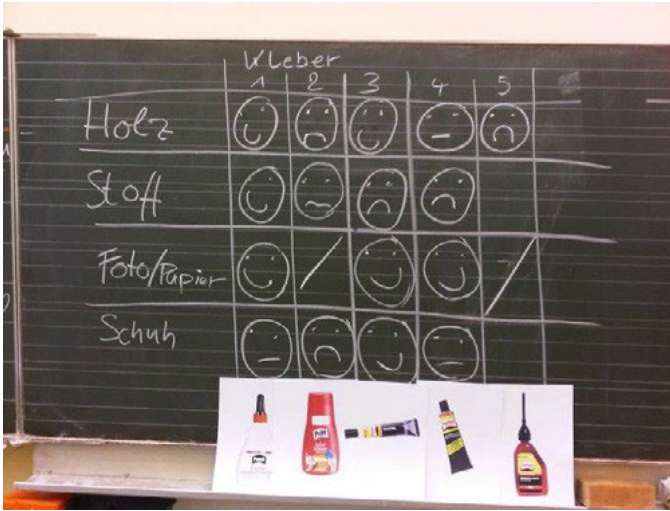 Kleber
1 2 3 4 5
Holz
Stoff
Foto/Papier
Schuh
Pritt